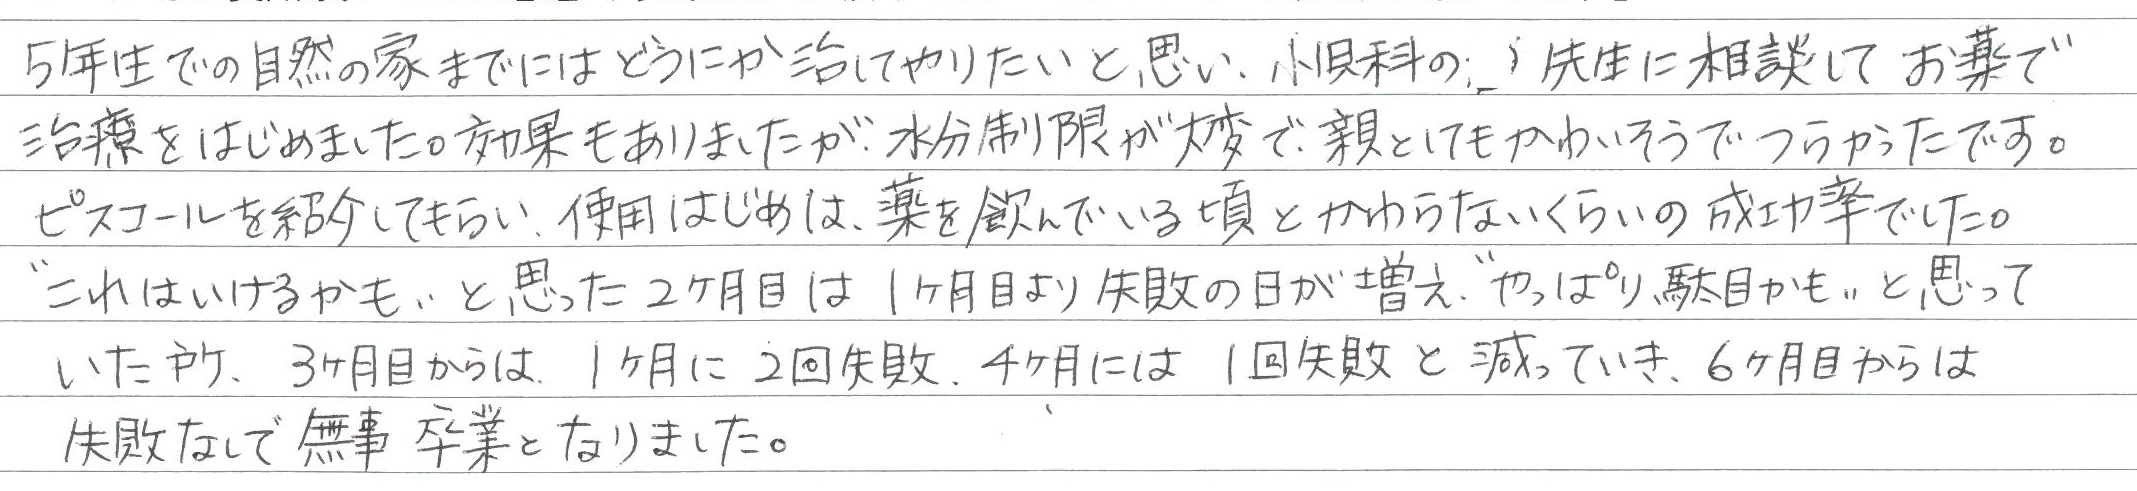 5年生での自然の家までにはどうにか治してやりたいと思い、小児科の 先生に相談してお薬で
治療をはじめました。効果もありましたが、水分制限が大変で、親としてもかわいそうでつらかったです。
ピスコールを紹介してもらい、使用はじめは、薬を飲んでいる頃とかわらないくらいの成功率でした。
"これはいけるかも"と思った2ケ月目は1ケ月目より失敗の日が増え、"やっぱり駄目かも"と思って
いた所、3ケ月目からは、1ケ月に2回失敗、4ケ月には1回失敗と減っていき、6ケ月目からは
失敗なしで無事卒業となりました。